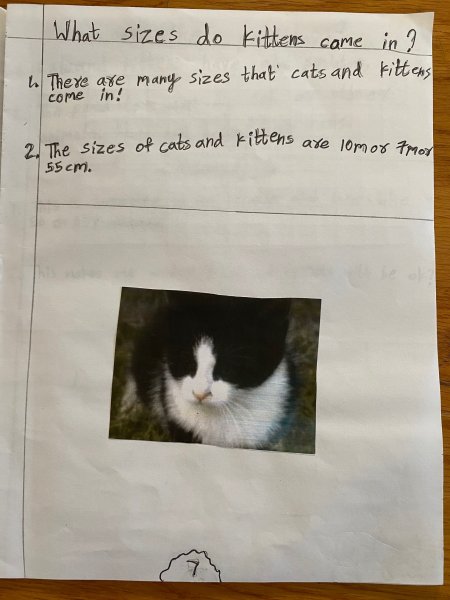 What sizes do kittens come in?
1. There are many sizes that cats and kittens
come in!
2. The sizes of cats and kittens are 10m or 7m or
55cm.
7